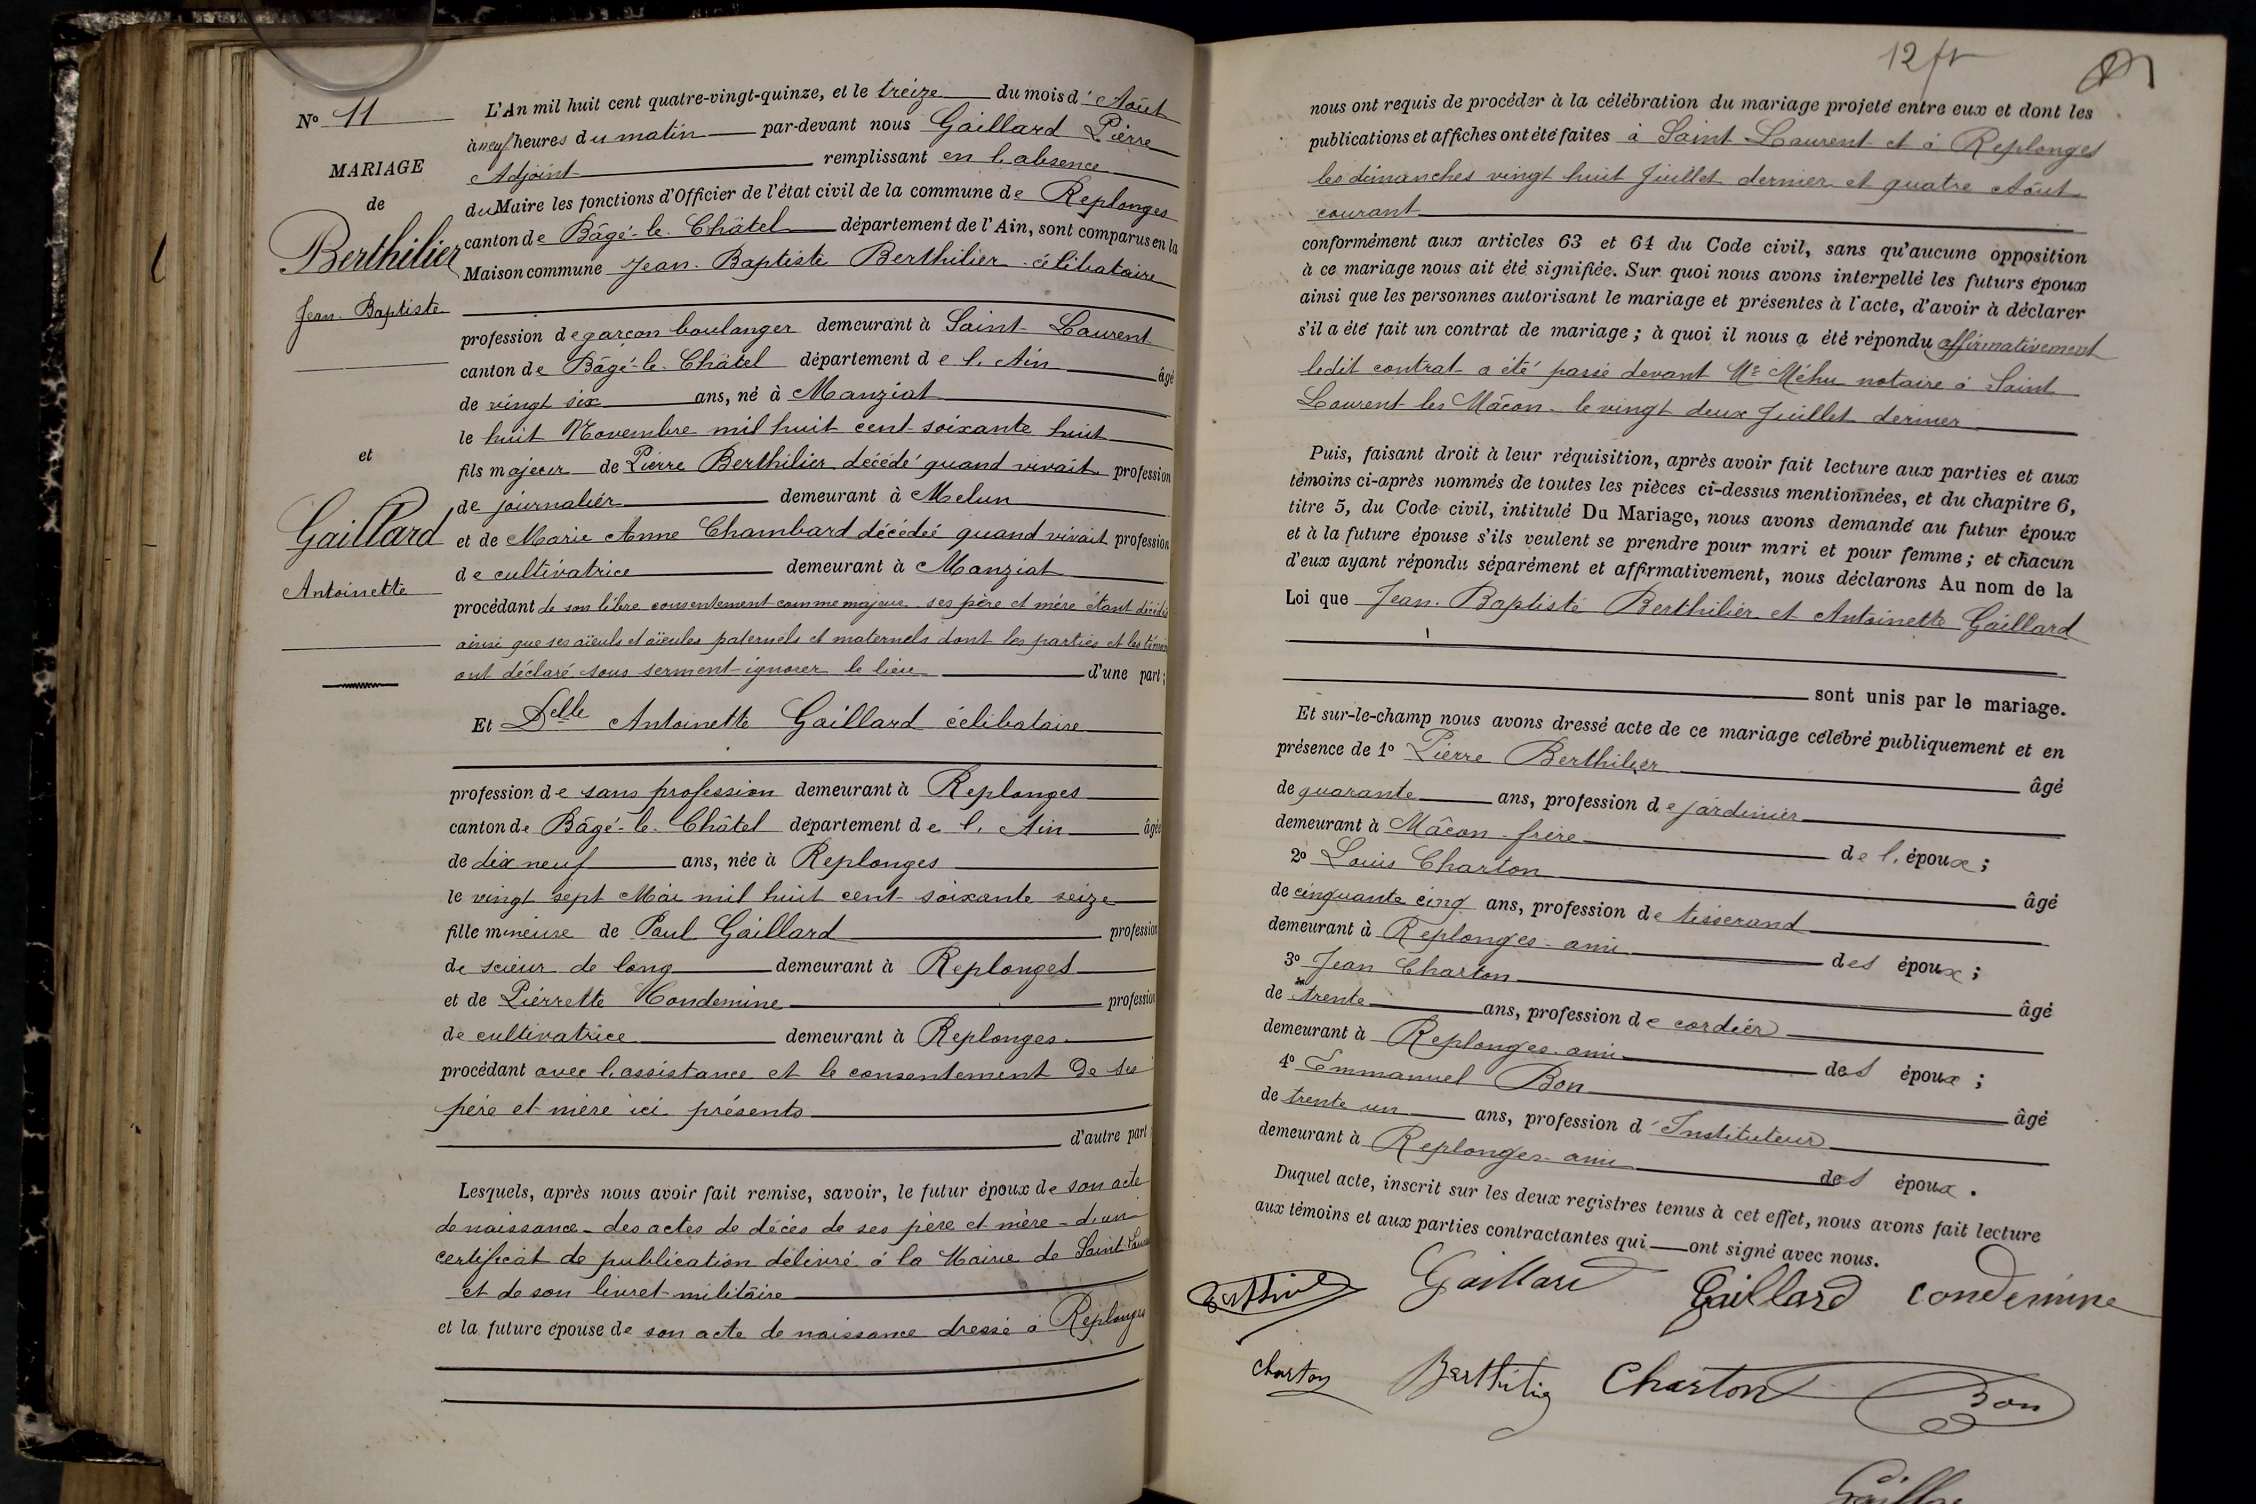 Nº 11
MARIAGE
de
Berthilier
Jean-Baptiste
et
Gaillard
Antoinette
L'An mil huit cent quatre-vingt-quinze, et le treize du mois d'Août
à neuf heures du matin par-devant nous Gaillard Pierre
Adjoint remplissant en l'absence
du Maire les fonctions d'Officier de l'état civil de la commune de Replonges
canton de Bâgé-le-Châtel département de l'Ain, sont comparus en la
Maison commune Jean-Baptiste Berthilier célibataire
profession de garçon boulanger demeurant à Saint-Laurent
canton de Bâgé-le-Châtel département de l'Ain âgé
de vingt six ans, né à Manziat
le huit Novembre mil huit cent soixante huit
fils majeur de Pierre Berthilier décédé quand vivait profession
de journalier demeurant à Melun
et de Marie Anne Chambard décédée quand vivait profession
de cultivatrice demeurant à Manziat
procédant de son libre consentement comme majeur ses père et mère étant décédés
ainsi que ses aïeuls et aïeules paternels et maternels dont les parties et les témoins
ont déclaré sous serment ignorer le lieu d'une part;
Et Delle Antoinette Gaillard célibataire
profession de sans profession demeurant à Replonges
canton de Bâgé-le-Châtel département de l'Ain âgée
de dix neuf ans, née à Replonges
le vingt sept Mai mil huit cent soixante seize
fille mineure de Paul Gaillard profession
de scieur de long demeurant à Replonges
et de Pierrette Condemine profession
de cultivatrice demeurant à Replonges
procédant avec l'assistance et le consentement de ses
père et mère ici présents
d'autre part
Lesquels, après nous avoir fait remise, savoir, le futur époux de son acte
de naissance - des actes de décès de ses père et mère - d'un
certificat de publication délivré à la Mairie de Saint-Laurent
et de son livret militaire
et la future épouse de son acte de naissance dressé à Replonges
12 fr
nous ont requis de procéder à la célébration du mariage projeté entre eux et dont les
publications et affiches ont été faites à Saint-Laurent et à Replonges
les dimanches vingt huit Juillet dernier et quatre Août
courant
conformément aux articles 63 et 64 du Code civil, sans qu'aucune opposition
à ce mariage nous ait été signifiée. Sur quoi nous avons interpellé les futurs époux
ainsi que les personnes autorisant le mariage et présentes à l'acte, d'avoir à déclarer
s'il a été fait un contrat de mariage; à quoi il nous a été répondu affirmativement
ledit contrat a été passé devant Me Méhu notaire à Saint
Laurent les Mâcon le vingt deux Juillet dernier
Puis, faisant droit à leur réquisition, après avoir fait lecture aux parties et aux
témoins ci-après nommés de toutes les pièces ci-dessus mentionnées, et du chapitre 6,
titre 5, du Code civil, intitulé Du Mariage, nous avons demandé au futur époux
et à la future épouse s'ils veulent se prendre pour mari et pour femme; et chacun
d'eux ayant répondu séparément et affirmativement, nous déclarons Au nom de la
Loi que Jean-Baptiste Berthilier et Antoinette Gaillard
sont unis par le mariage.
Et sur-le-champ nous avons dressé acte de ce mariage célébré publiquement et en
présence de 1º Pierre Berthilier âgé
de quarante ans, profession de jardinier
demeurant à Mâcon - frère de l'époux;
2º Louis Charton âgé
de cinquante cinq ans, profession de tisserand
demeurant à Replonges - ami des époux;
3º Jean Charton âgé
de trente ans, profession de cordier
demeurant à Replonges - ami des époux;
4º Emmanuel Bon âgé
de trente un ans, profession d'Instituteur
demeurant à Replonges - ami des époux.
Duquel acte, inscrit sur les deux registres tenus à cet effet, nous avons fait lecture
aux témoins et aux parties contractantes qui ont signé avec nous.
Gaillard Gaillard Condemine
Charton Berthilier Charton Bon